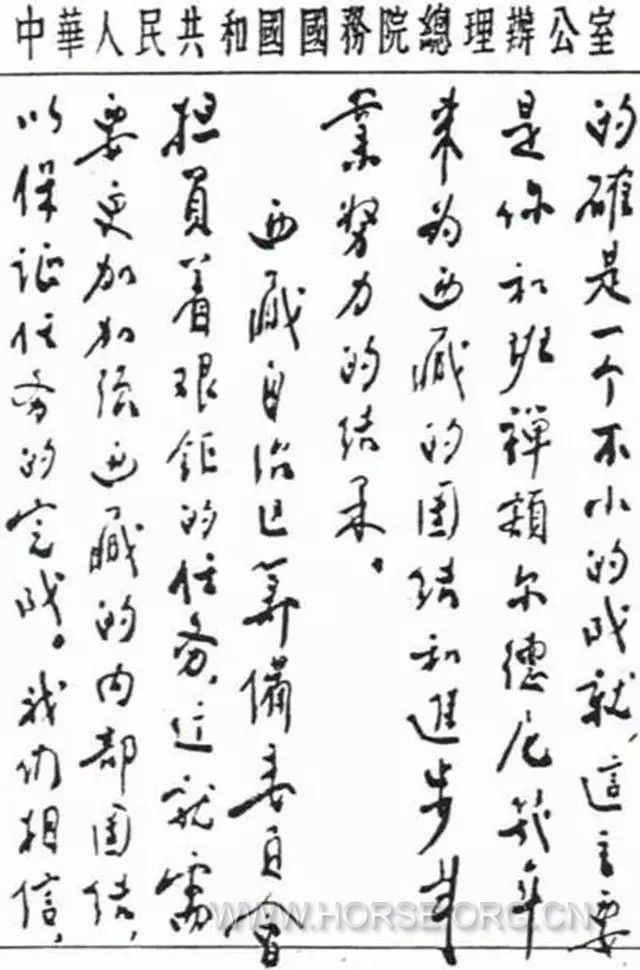 中華人民共和國國務院總理辦公室
的確是一个不小的成就，這主要
是你和班禪額尔德尼幾年
来为西藏的团结和進步事
業努力的结果。
西藏自治区筹備委員会
担負着艰鉅的任务，这就需
要更加加强西藏的内部团结，
以保证任务的完成。我们相信，
WWW.HORSE.ORG.CN